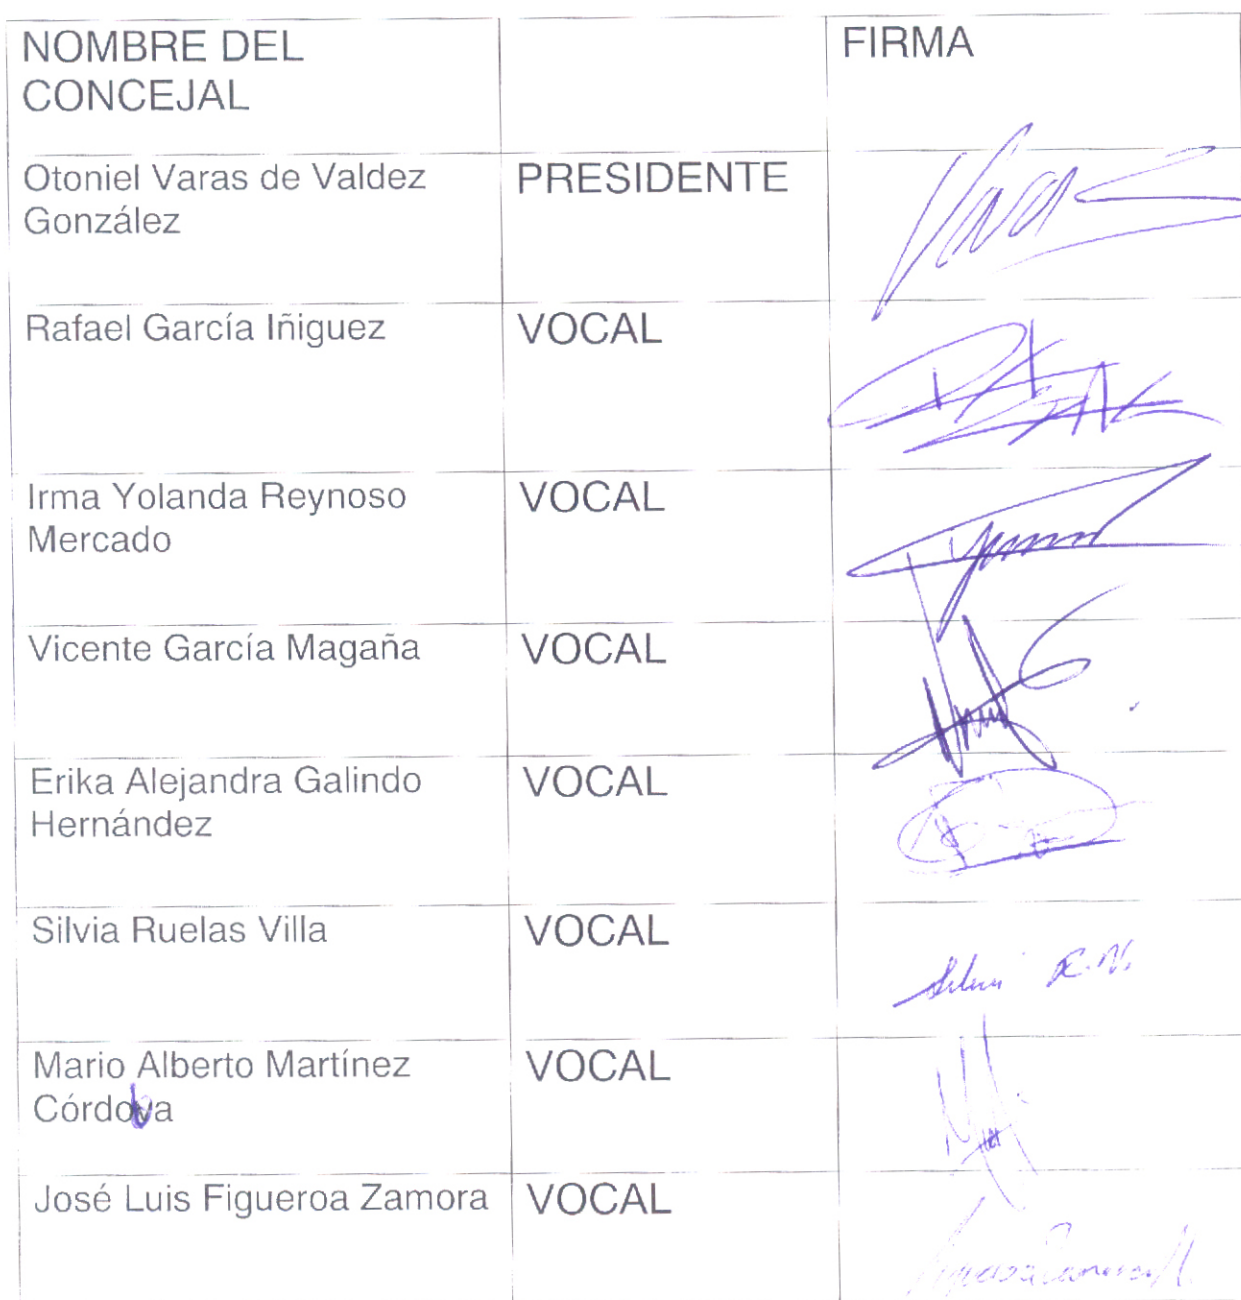 NOMBRE DEL
CONCEJAL
FIRMA
Otoniel Varas de Valdez
González
PRESIDENTE
Rafael García Iñiguez
VOCAL
Irma Yolanda Reynoso
Mercado
VOCAL
Vicente García Magaña
VOCAL
Erika Alejandra Galindo
Hernández
VOCAL
Silvia Ruelas Villa
VOCAL
Mario Alberto Martínez
Córdoba
VOCAL
José Luis Figueroa Zamora
VOCAL